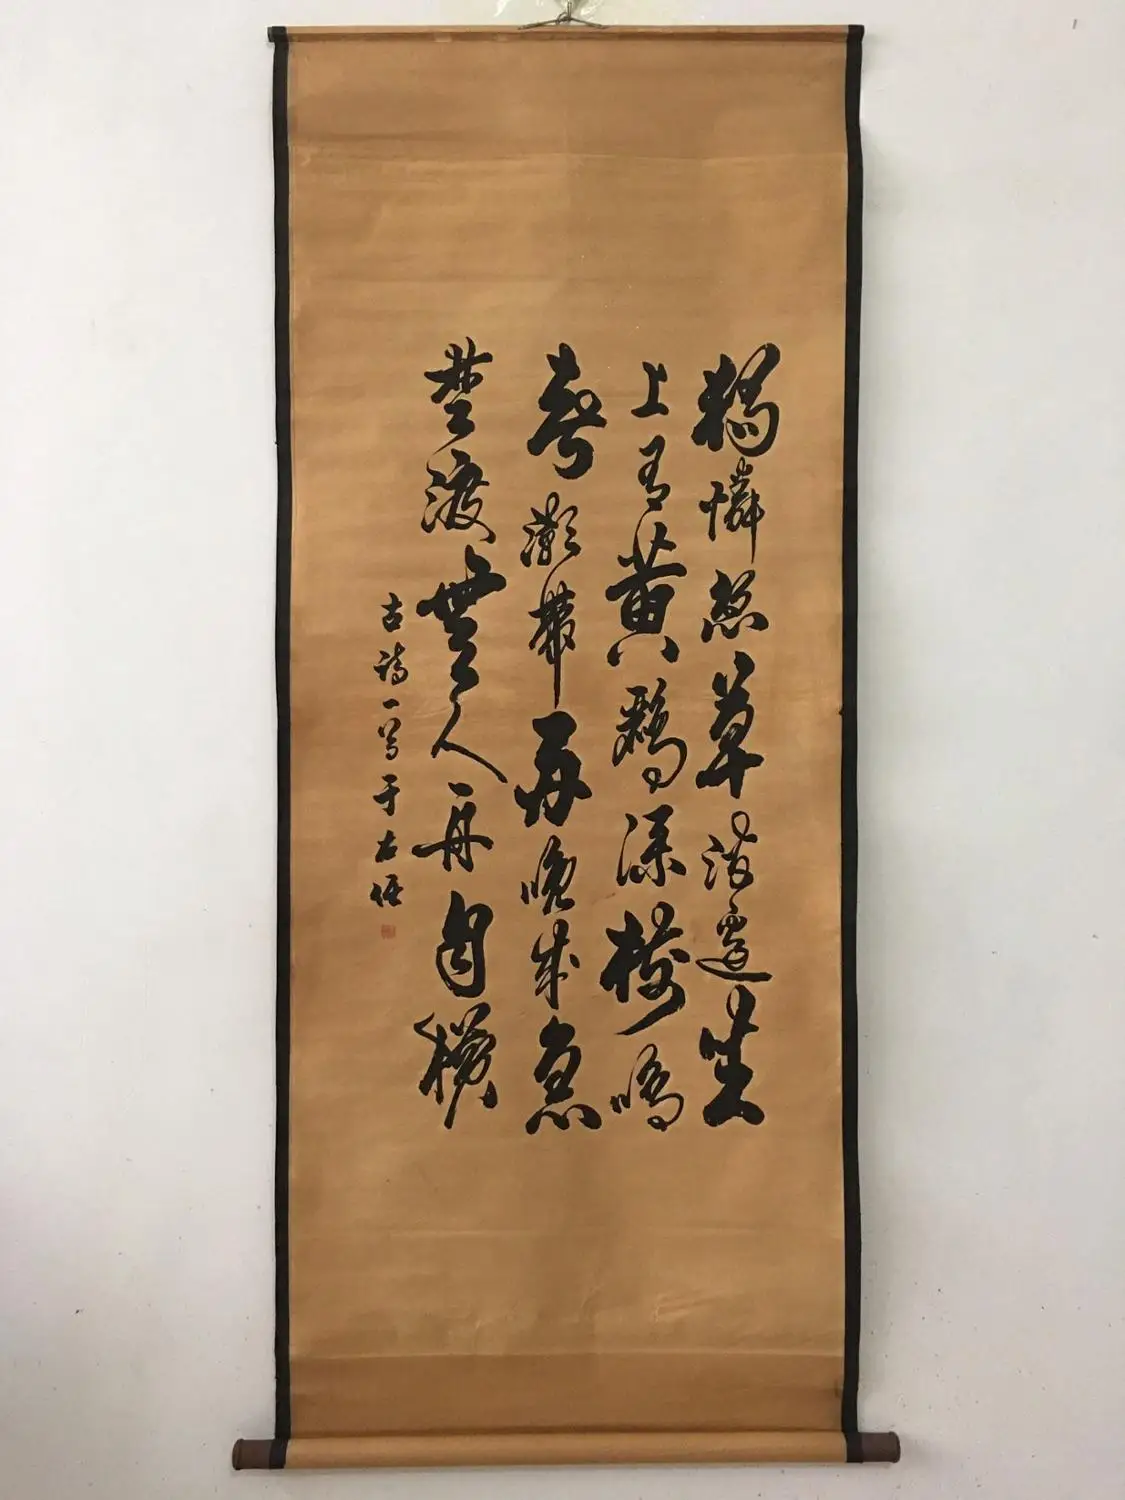 獨憐幽草澗邊生
上有黃鸝深樹鳴
春潮帶雨晚來急
野渡無人舟自橫
古詩一首于右任